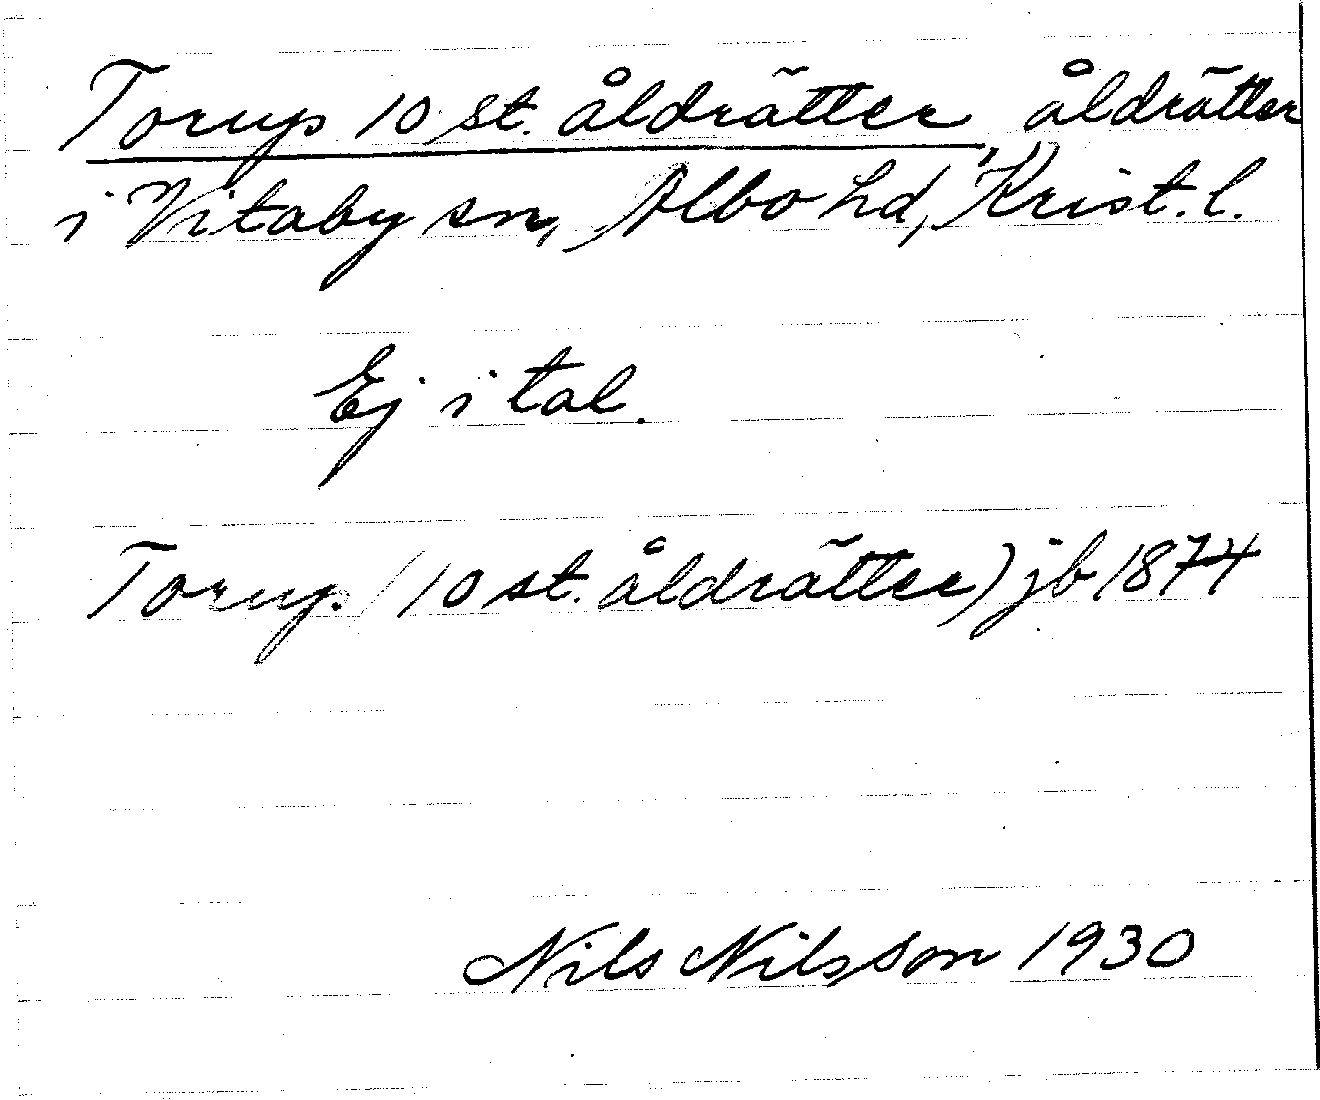 Torup 10 st. åldrätter, åldrätter
i Vitaby sn, Albo hd, Krist. l.
Ej i tal.
Torup (10 st. åldrätter) jb 1874
Nils Nilsson 1930